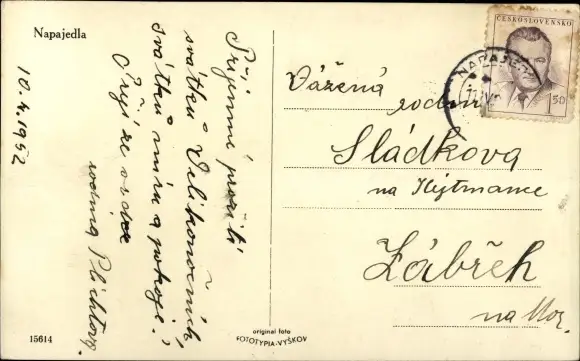 Napajedla
10.4.1952
Příjemné prožití
svátků Velikonočních,
svátků míru a pokoje,
Přejí ze srdce
rodina
ČESKOSLOVENSKO
50
NAPAJED
Vážená
rodina
Sládkova
na
Zábřeh
na Mor.
15614
original foto
FOTOTYPIA-VYŠKOV